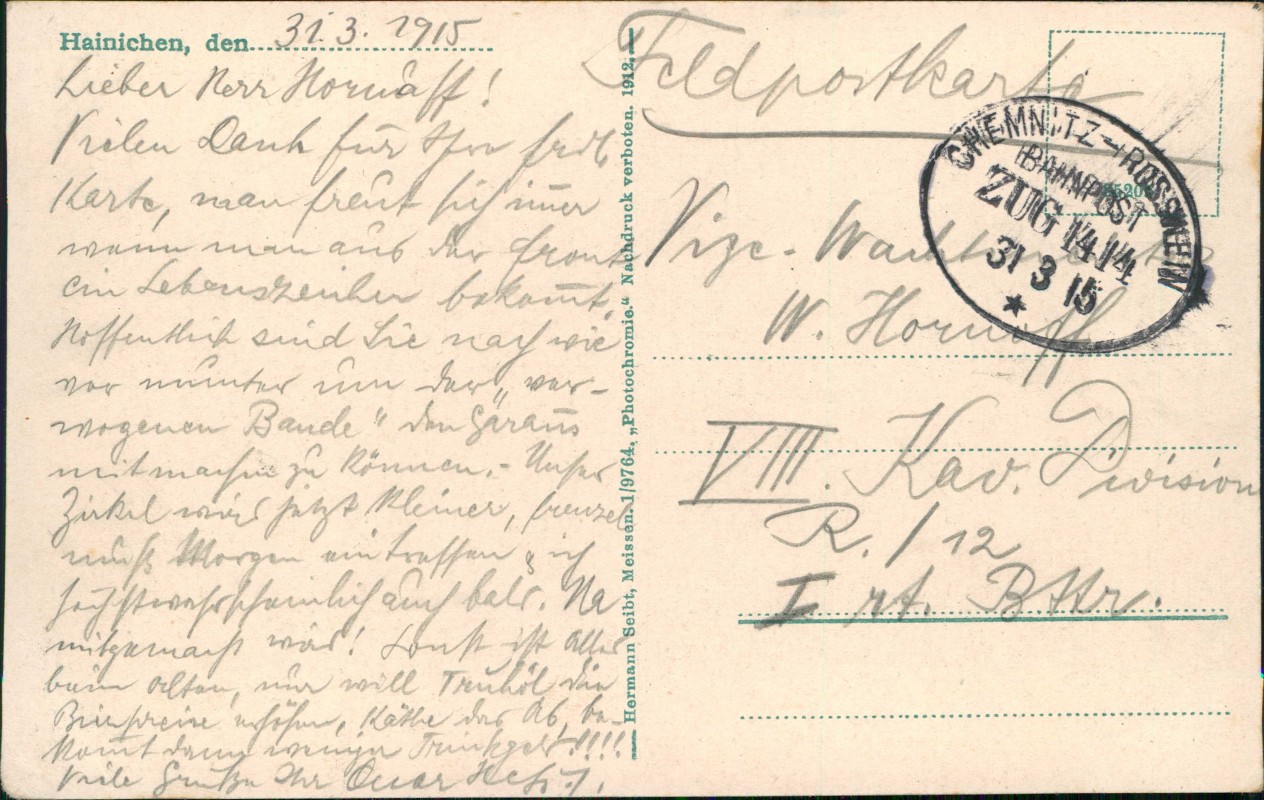 Hainichen, den 31.3.1915
Lieber Herr Hornuff!
Vielen Dank für Ihre frdl.
Karte, man freut sich imer
wenn man aus der Front
ein Lebenszeichen bekomt.
Hoffentlich sind Sie nach wie
vor munter um der „ver-
wogenen Bande" den Garaus
mitmachen zu können. - Unser
Zirkel wird jetzt kleiner, Frenzel
muß Morgen eintreffen & ich
höchstwahrscheinlich auch bald. Na
mitgemacht wird! Sonst ist Alles
beim alten, nur will die
Bierpreise erhöhen, Käthe das Ab, be-
komt dann weniger Trinkgeld!!!!
Viele Grüße Ihr Oscar
Hermann Seibt, Meissen. 1/9764. „Photochromie." Nachdruck verboten. 1912.
Feldpostkarte
CHEMNITZ-ROSSWEIN
BAHNPOST
ZUG 1414
31 3 15
Vize-Wachtmeister
W. Hornuff
VIII. Kav. Division
R. / 12
I rt. Bttr.